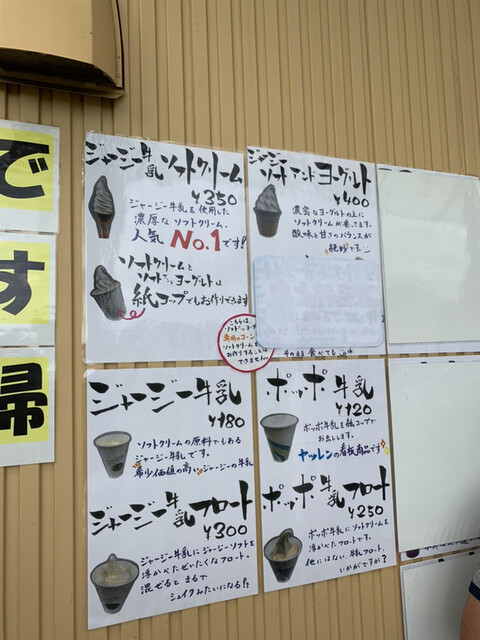 で
す
帰
ジャージー牛乳ソフトクリーム
¥350
ジャージー牛乳を使用した
濃厚なソフトクリーム。
人気No.1です!
ソフトクリームと
ソフトアンドヨーグルトは
紙コップでもお作りできます
ジャージー
ソフトアンドヨーグルト
¥400
濃密なヨーグルトの上に
ソフトクリームが乗ってます。
酸味と甘さのバランスが
絶妙です
こちらは、
ソフトクリームを
お作りすることは
できません。
そのまま食べても
ジャージー牛乳
¥180
ソフトクリームの原料でもある
ジャージー牛乳です。
希少価値の高いジャージーの牛乳
ジャージー牛乳フロート
¥300
ジャージー牛乳にジャージーソフトを
浮かべたぜいたくなフロート。
混ぜるとまるで
シェイクみたいになる!?
ポッポ牛乳
¥120
ポッポ牛乳を紙コップで
お出しします。
ヤツレンの看板商品です
ポッポ牛乳フロート
¥250
ポッポ牛乳にソフトクリームを
浮かべたフロートです。
他にはない、牛乳フロート、
いかがですか?